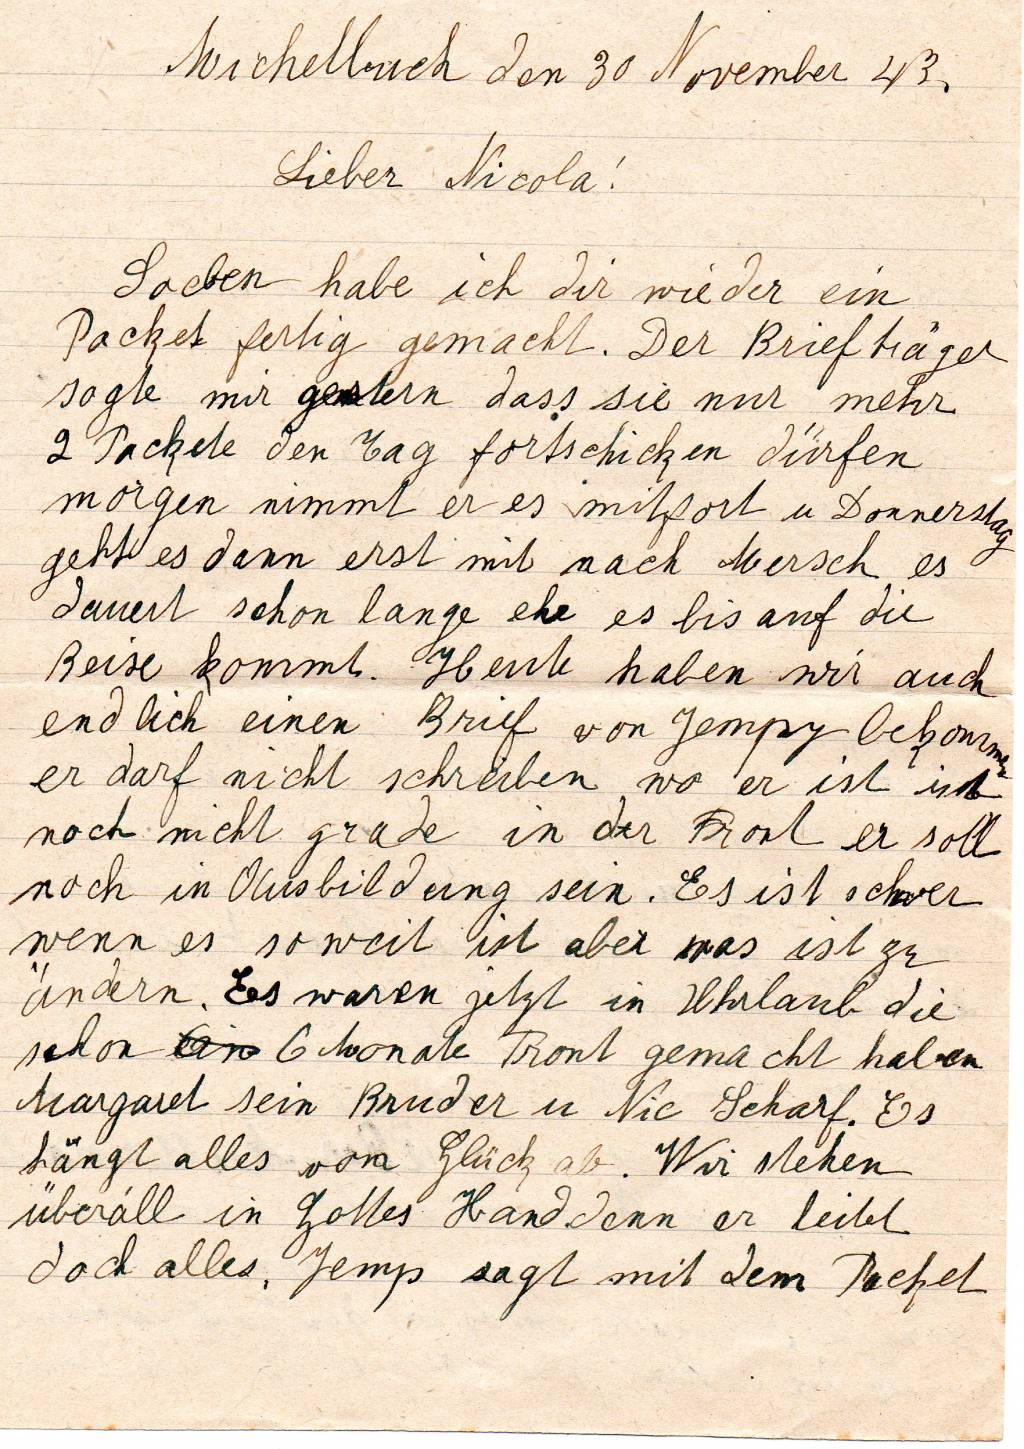 Michelbuch den 30 November 43.
Lieber Nicola!
Soeben habe ich dir wieder ein
Packet fertig gemacht. Der Briefträger
sagte mir gestern dass sie nur mehr
2 Packete den Tag fortschicken dürfen
morgen nimmt er es mitfort u Donnerstag
geht es dann erst mit nach Mersch es
dauert schon lange ehe es bis auf die
Reise kommt. Heute haben wir auch
endlich einen Brief von Jempy bekommen
er darf nicht schreiben wo er ist ist
noch nicht grade in der Front er soll
noch in Ausbildung sein. Es ist schwer
wenn es soweit ist aber was ist zu
ändern. Es waren jetzt in Uhrlaub die
schon 6 Monate Front gemacht haben
Margaret sein Bruder u Nic Scharf. Es
hängt alles vom Glück ab. Wir stehen
überall in Gottes Hand denn er leitet
doch alles. Jemp sagt mit dem Packet